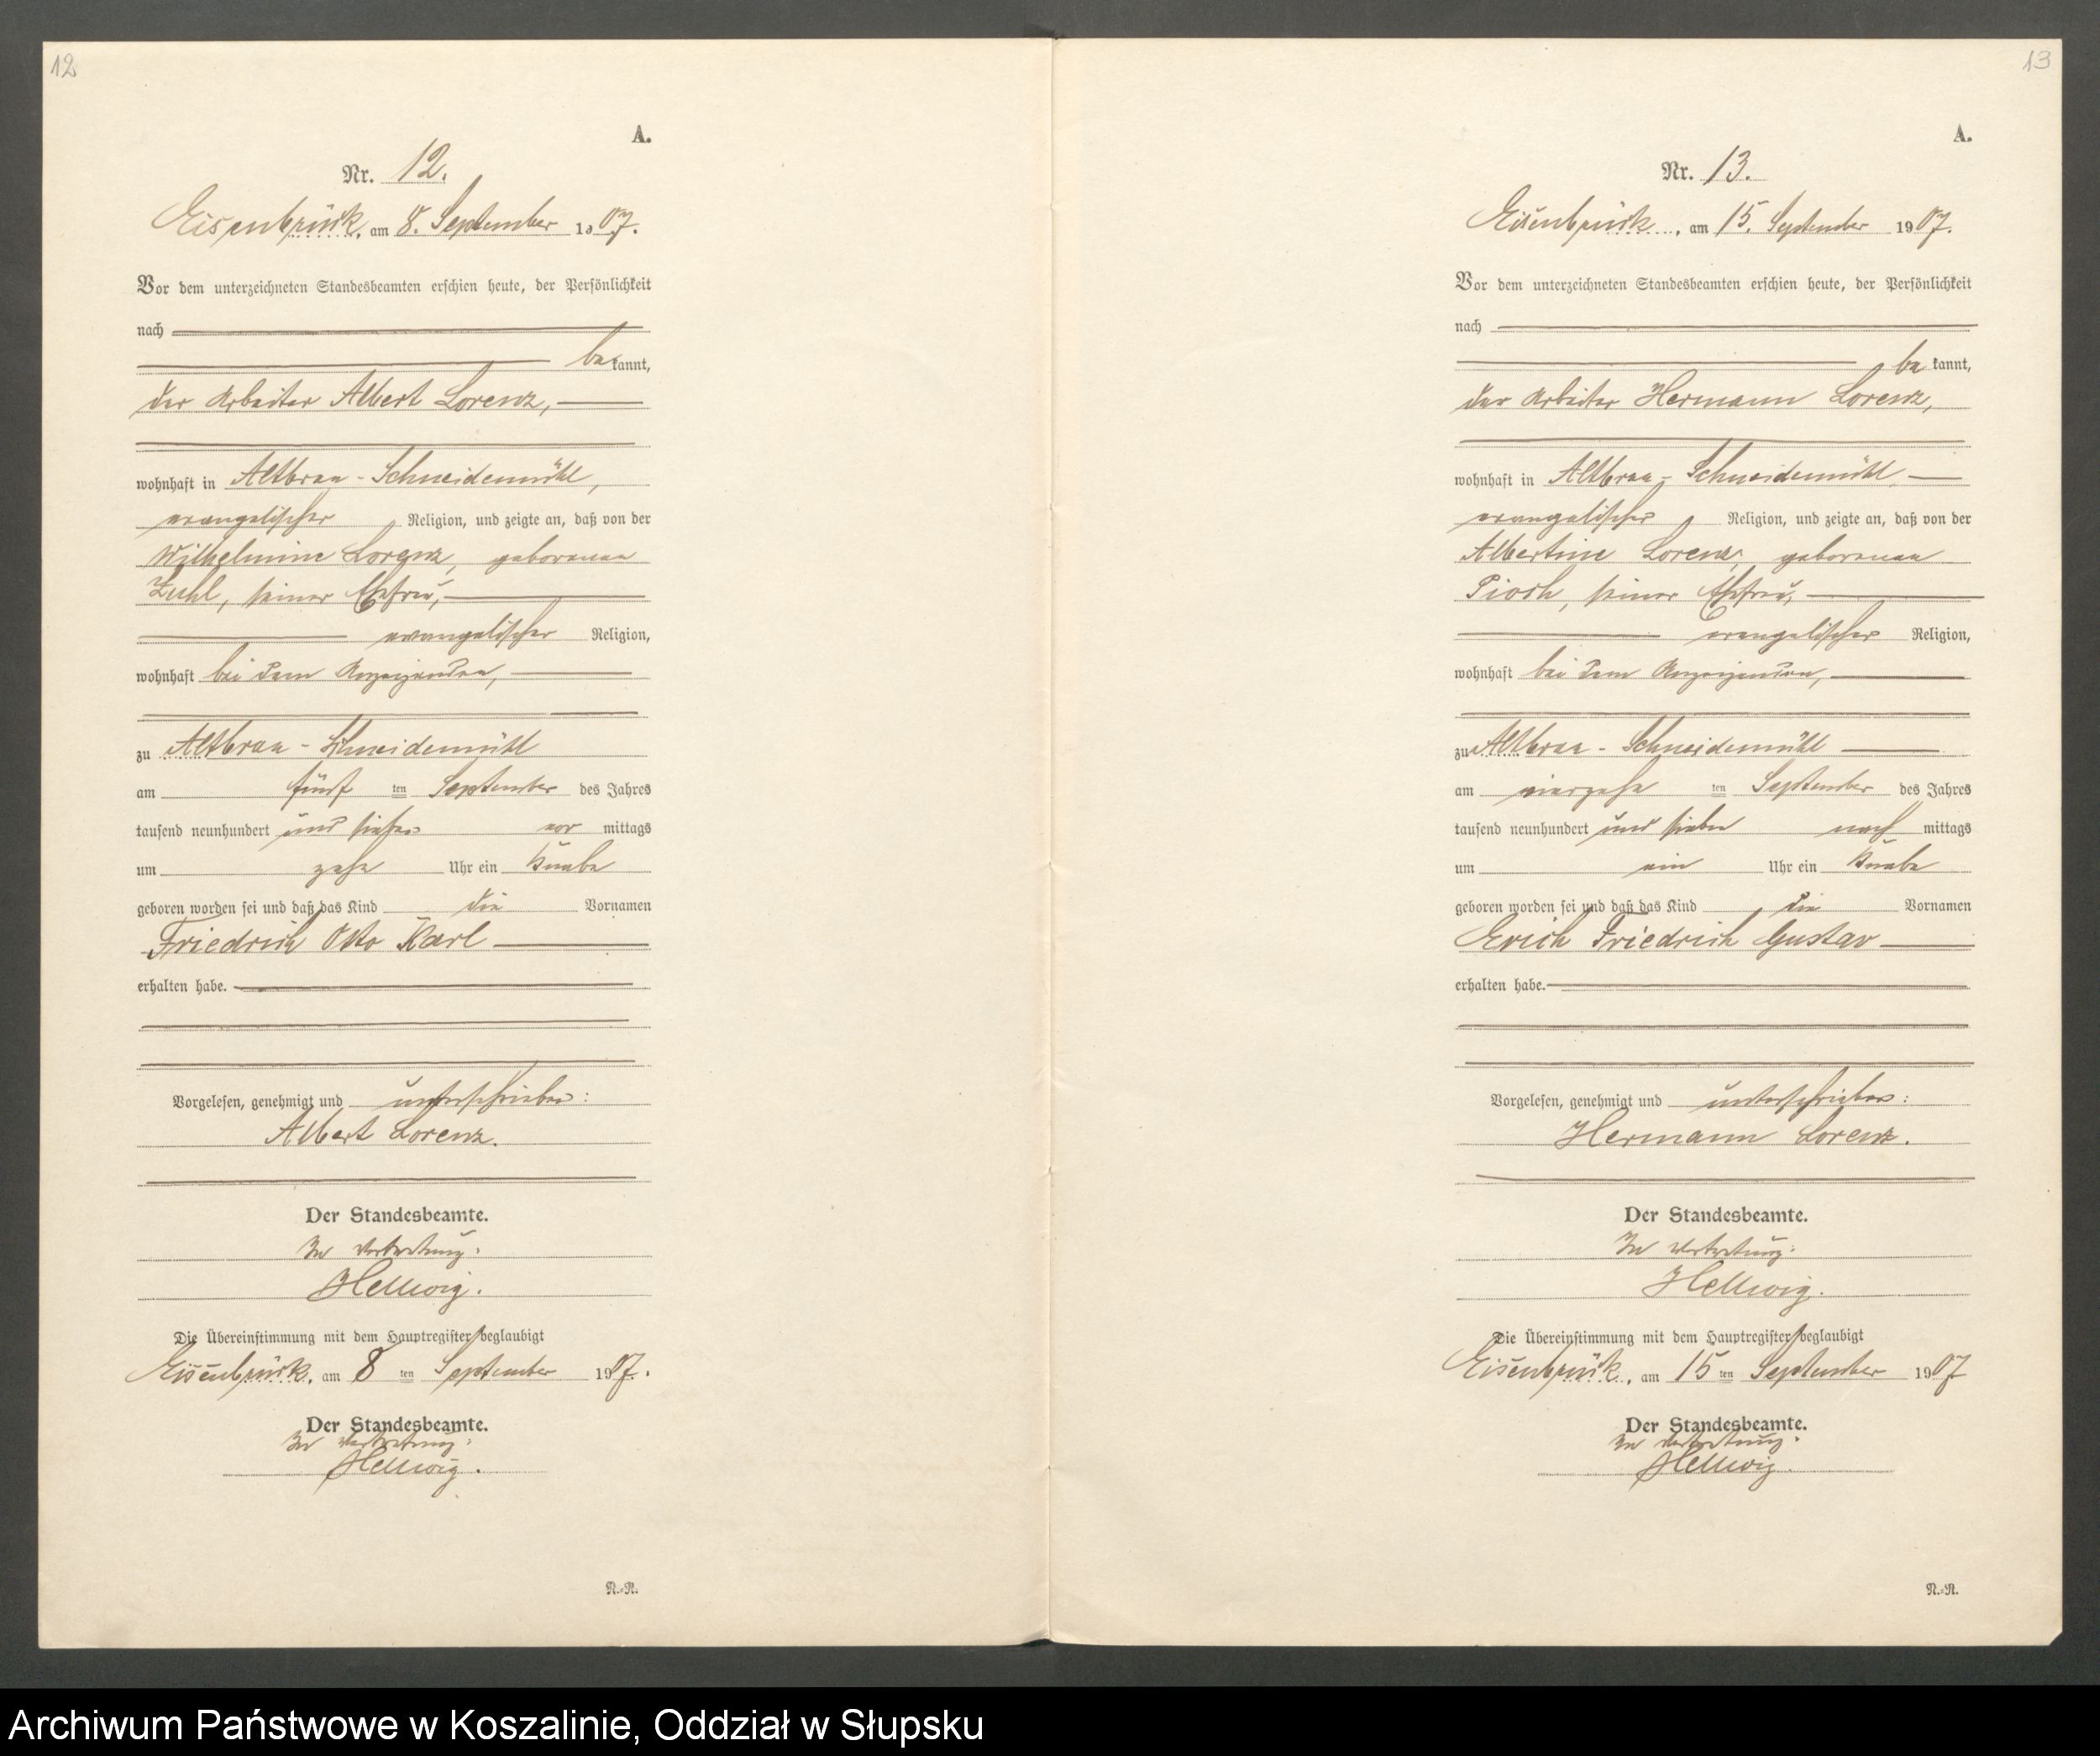 12
A.
Nr. 12.
Eisenbrück, am 8. September 1907.
Vor dem unterzeichneten Standesbeamten erschien heute, der Persönlichkeit
nach
be kannt,
der Arbeiter Albert Lorenz,
wohnhaft in Altbraa-Schneidemühl,
evangelischer Religion, und zeigte an, daß von der
Wilhelmine Lorenz, geborenen
Zuhl, seiner Ehefrau,
evangelischer Religion,
wohnhaft bei dem Anzeigenden,
zu Altbraa-Schneidemühl
am fünf ten September des Jahres
tausend neunhundert und sieben vor mittags
um zehn Uhr ein Knabe
geboren worden sei und daß das Kind die Vornamen
Friedrich Otto Karl
erhalten habe.
Vorgelesen, genehmigt und unterschrieben:
Albert Lorenz.
Der Standesbeamte.
In Vertretung:
Hellwig.
Die Übereinstimmung mit dem Hauptregister beglaubigt
Eisenbrück, am 8 ten September 1907.
Der Standesbeamte.
In Vertretung:
Hellwig.
N.-R.
13
A.
Nr. 13.
Eisenbrück, am 15. September 1907.
Vor dem unterzeichneten Standesbeamten erschien heute, der Persönlichkeit
nach
be kannt,
der Arbeiter Hermann Lorenz,
wohnhaft in Altbraa-Schneidemühl,
evangelischer Religion, und zeigte an, daß von der
Albertine Lorenz, geborenen
Pioch, seiner Ehefrau,
evangelischer Religion,
wohnhaft bei dem Anzeigenden,
zu Altbraa-Schneidemühl
am vierzehn ten September des Jahres
tausend neunhundert und sieben nach mittags
um ein Uhr ein Knabe
geboren worden sei und daß das Kind die Vornamen
Erich Friedrich Gustav
erhalten habe.
Vorgelesen, genehmigt und unterschrieben:
Hermann Lorenz.
Der Standesbeamte.
In Vertretung:
Hellwig.
Die Übereinstimmung mit dem Hauptregister beglaubigt
Eisenbrück, am 15 ten September 1907
Der Standesbeamte.
In Vertretung:
Hellwig.
N.-R.
Archiwum Państwowe w Koszalinie, Oddział w Słupsku